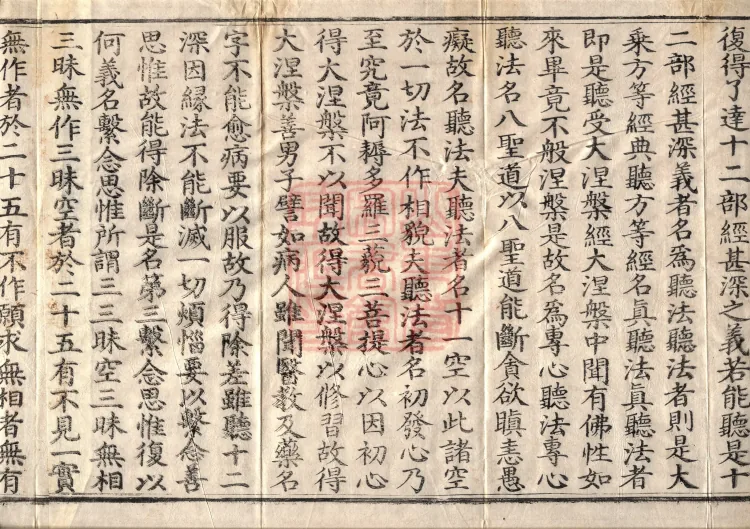 復得了達十二部經甚深之義若能聽是十
二部經甚深義者名爲聽法聽法者則是大
乘方等經典聽方等經名眞聽法眞聽法者
即是聽受大涅槃經大涅槃中聞有佛性如
來畢竟不般涅槃是故名爲專心聽法專心
聽法名八聖道以八聖道能斷貪欲瞋恚愚
癡故名聽法夫聽法者名十一空以此諸空
於一切法不作相貌夫聽法者名初發心乃
至究竟阿耨多羅三藐三菩提心以因初心
得大涅槃不以聞故得大涅槃以修習故得
大涅槃善男子譬如病人雖聞醫教及藥名
字不能愈病要以服故乃得除差雖聽十二
深因緣法不能斷滅一切煩惱要以繫念善
思惟故能得除斷是名第三繫念思惟復以
何義名繫念思惟所謂三三昧空三昧無相
三昧無作三昧空者於二十五有不見一實
無作者於二十五有不作願求無相者無有